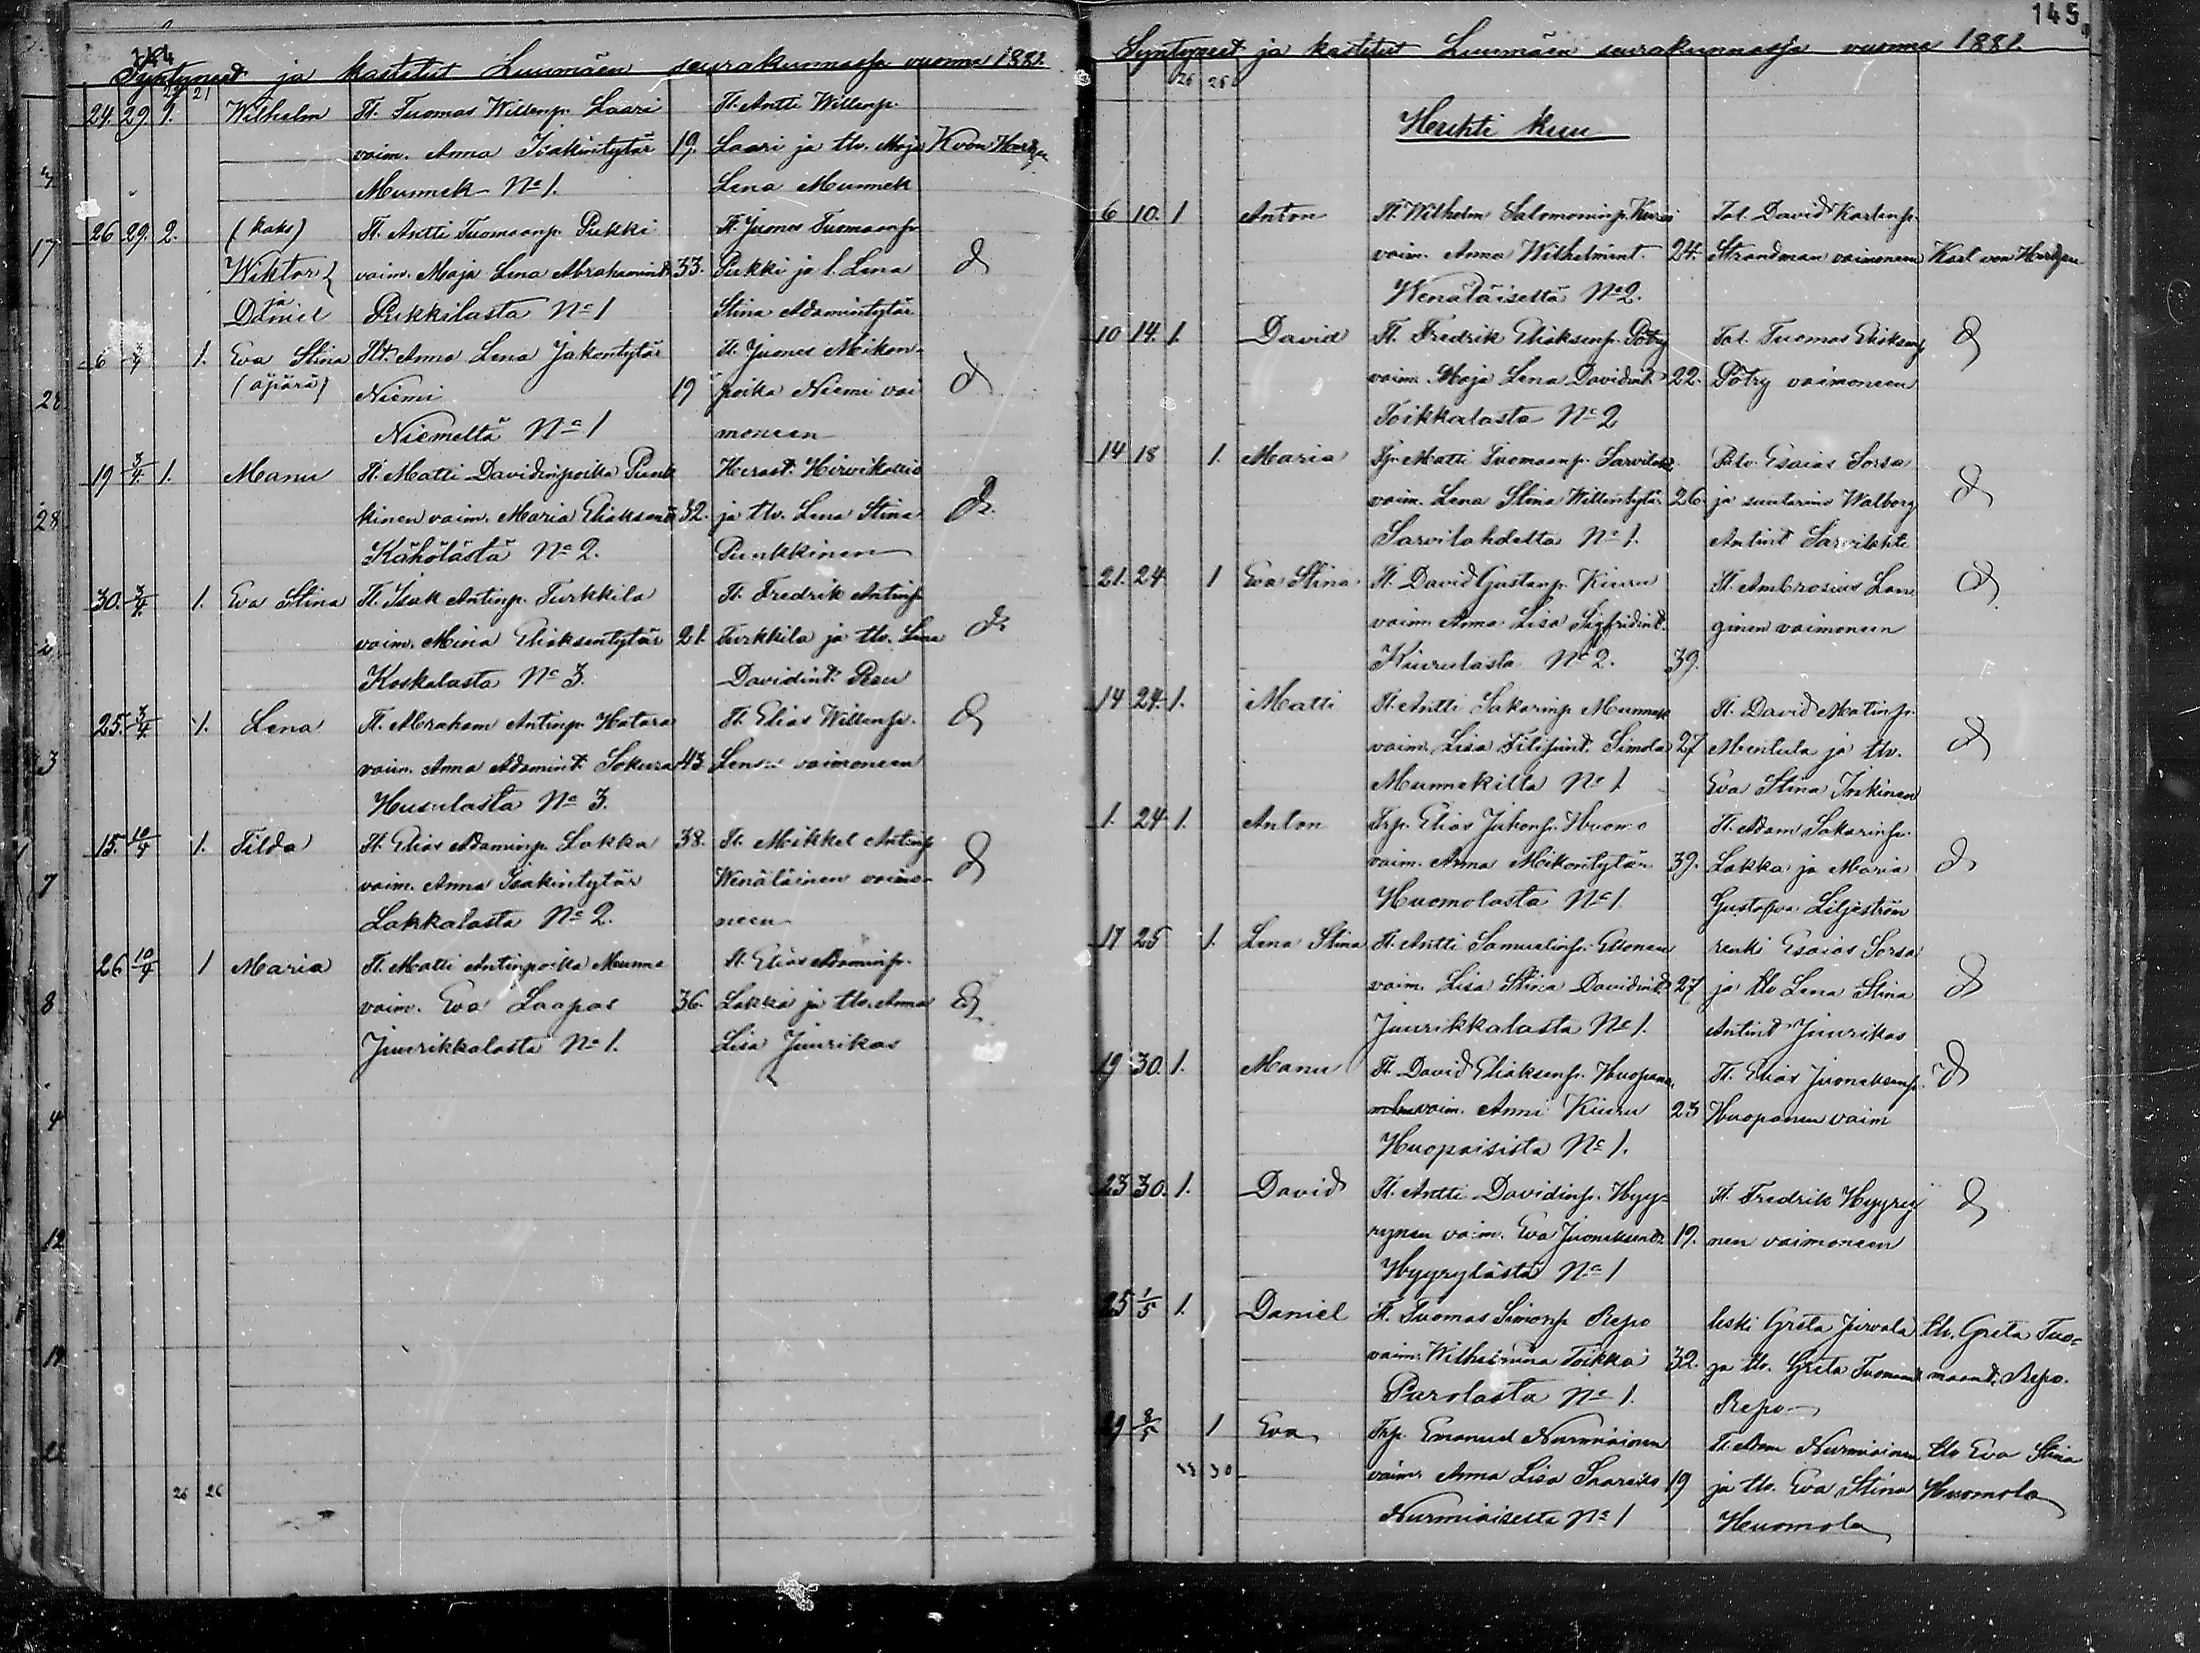 144
Syntyneet ja kastetut Luumäen seurakunnassa vuonna 1881.
24. 29. 1. Wilhelm Tl. Tuomas Willenp. Laari Tl. Antti Willenp.
vaim. Anna Isakintytär 19. Laari ja tlv. Maja K von Hertzen
Munnek No 1. Lena Munnek
26 29. 2. (kaks) Tl. Antti Tuomaanp. Pukki Tl. Juonas Tuomaanp.
Wiktor vaim. Maja Lena Abrahamint. 33. Pukki ja l. Lena
ja
Daniel Pukkilasta No 1 Stina Adamintytär
6 3/4 1. Eva Stina Tlt. Anna Lena Jakontytär Tl. Juonas Mikon-
(äpärä) Niemi 19 poika Niemi vai
Niemeltä No 1 moneen
19 3/4 1. Manu Tl. Matti Davidinpoika Punk Herast. Hirvikallio
kinen vaim. Maria Eliaksent. 32. ja tlv. Lena Stina
Kähölästä No 2. Punkkinen
30. 3/4 1. Eva Stina Tl. Isak Antinp. Turkkila Tl. Fredrik Antinp.
vaim. Mina Eliaksentytär 21. Turkkila ja tlv. Lena
Koskalasta No 3. Davidint. Pesu
25. 3/4 1. Lena Tl. Abraham Antinp. Hatara Tl. Elias Willenp.
vaim. Anna Adamint. Sokura 43 vaimoneen
Husulasta No 3.
15. 10/4 1. Tilda Tl. Elias Adaminp. Lakka 38. Tl. Mikkel Antinp
vaim. Anna Isakintytär Wenäläinen vaimo-
Lakkalasta No 2. neen
26 10/4 1 Maria Tl. Matti Antinpoika Munne Tl. Elias Adaminp.
vaim. Eva Laapas 36. Lakka ja tlv. Anna
Juurikkalasta No 1. Lisa Juurikas
26 26
145
Syntyneet ja kastetut Luumäen seurakunnassa vuonna 1881.
26 26
Huhti kuu
6 10. 1 Anton Tl. Wilhelm Salomoninp. Tal. David Karlinp.
vaim. Anna Wilhelmint. 24. Strandman vaimoneen Karl von Hertzen
Wenäläiseltä No 2.
10 14. 1. David Tl. Fredrik Eliaksenp. Pötry Tal. Tuomas Eliaksenp
vaim. Maja Lena Davidint. 22. Pötry vaimoneen
Toikkalasta No 2
14 18 1. Maria Matti Tuomaanp. Sarvilahti Esaias Sorsa
vaim. Lena Stina Willentytär 26. ja suntarins Walborg
Sarvilahdelta No 1. Antint Sarvilahti
21. 24 1 Eva Stina Tl. David Gustavp. Kiuru Tl. Ambrosius Lan
vaim. Anna Lisa Sigfridint. ginen vaimoneen
Kiurulasta No 2. 39.
14 24. 1. Matti Tl. Antti Sakarinp Munnek Tl. David Matinp.
vaim. Lisa Filipint. Simola 27 Mentula ja tlv.
Munnekilta No 1 Eva Stina Inkinen
1. 24. 1. Anton Trp. Elias Juhonp. Huomo Tl. Adam Sakarinp.
vaim. Anna Mikontytär 39. Lakka ja Maria
Huomolasta No 1. Gustafva Liljeström
17 25 1. Lena Stina Tl. Antti Samuelinp. Ellonen renki Esaias Sorsa
vaim. Lisa Stina Davidint. 27 ja tlv Lena Stina
Juurikkalasta No 1. Antint Juurikas
19 30. 1. Manu Tl. David Eliaksenp. Huopana Tl. Elias Juonaksenp.
vaim. Anni Kiuru 23 Huopanen vaim
Huopaisista No 1.
23 30. 1. David Tl. Antti Davidinp. Hyy- Tl. Fredrik Hyyry
rynen vaim. Eva Juonaksent. 19. nen vaimoneen
Hyyrylästä No 1
25 1/5 1. Daniel Tl. Tuomas Simonp Repo leski Greta Jurvala tlv. Greta Tuo-
vaim. Wilhelmina Toikka 32. ja tlv. Greta Tuomant maant. Repo.
Parolasta No 1. Repo
29 8/5 1 Eva Trp. Emanuel Nurmiainen Tl. Nurmiainen tlv Eva Stina
30 vaim. Anna Lisa 19 ja tlv. Eva Stina Huomola
Nurmiaisesta No 1 Huomola